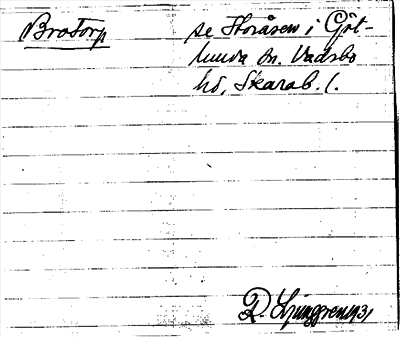 Brotorp
se Storåsen i Göt-
lunda sn. Vadsbo
hd, Skarab. l.
D. Ljunggren 1931